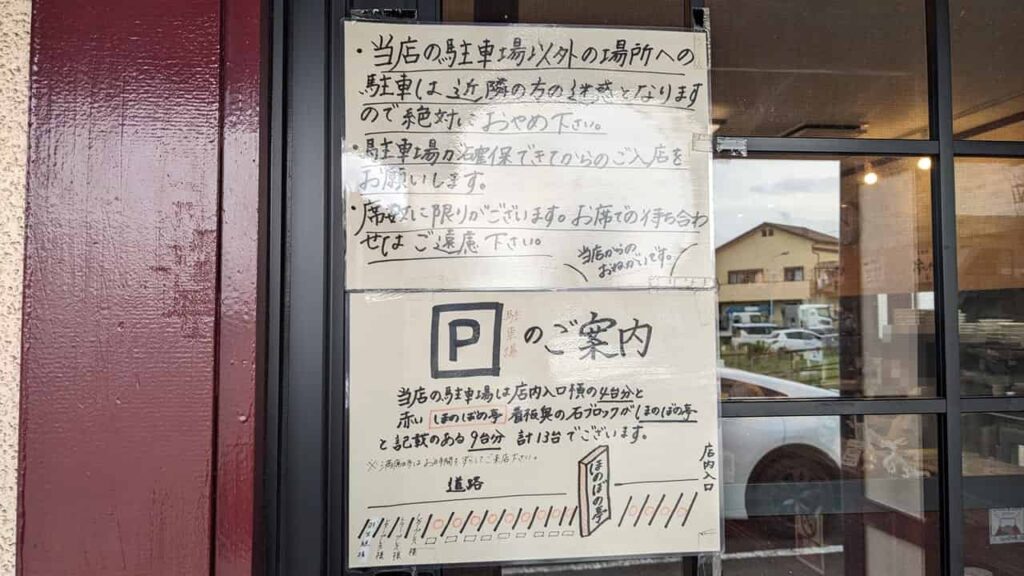 ・当店の駐車場以外の場所への
駐車は近隣の方の迷惑となります
ので絶対におやめ下さい。
・駐車場が確保できてからのご入店を
お願いします。
・席数に限りがございます。お席での待ち合わ
せはご遠慮下さい。
当店からの
おねがいです。
P
駐車場
のご案内
当店の駐車場は店内入口横の4台分と
赤いほのぼの亭看板奥の石ブロックがほのぼの亭
と記載のある9台分 計13台でございます。
※満車時はお時間をずらしてご来店下さい。
道路
ほのぼの亭
店内入口